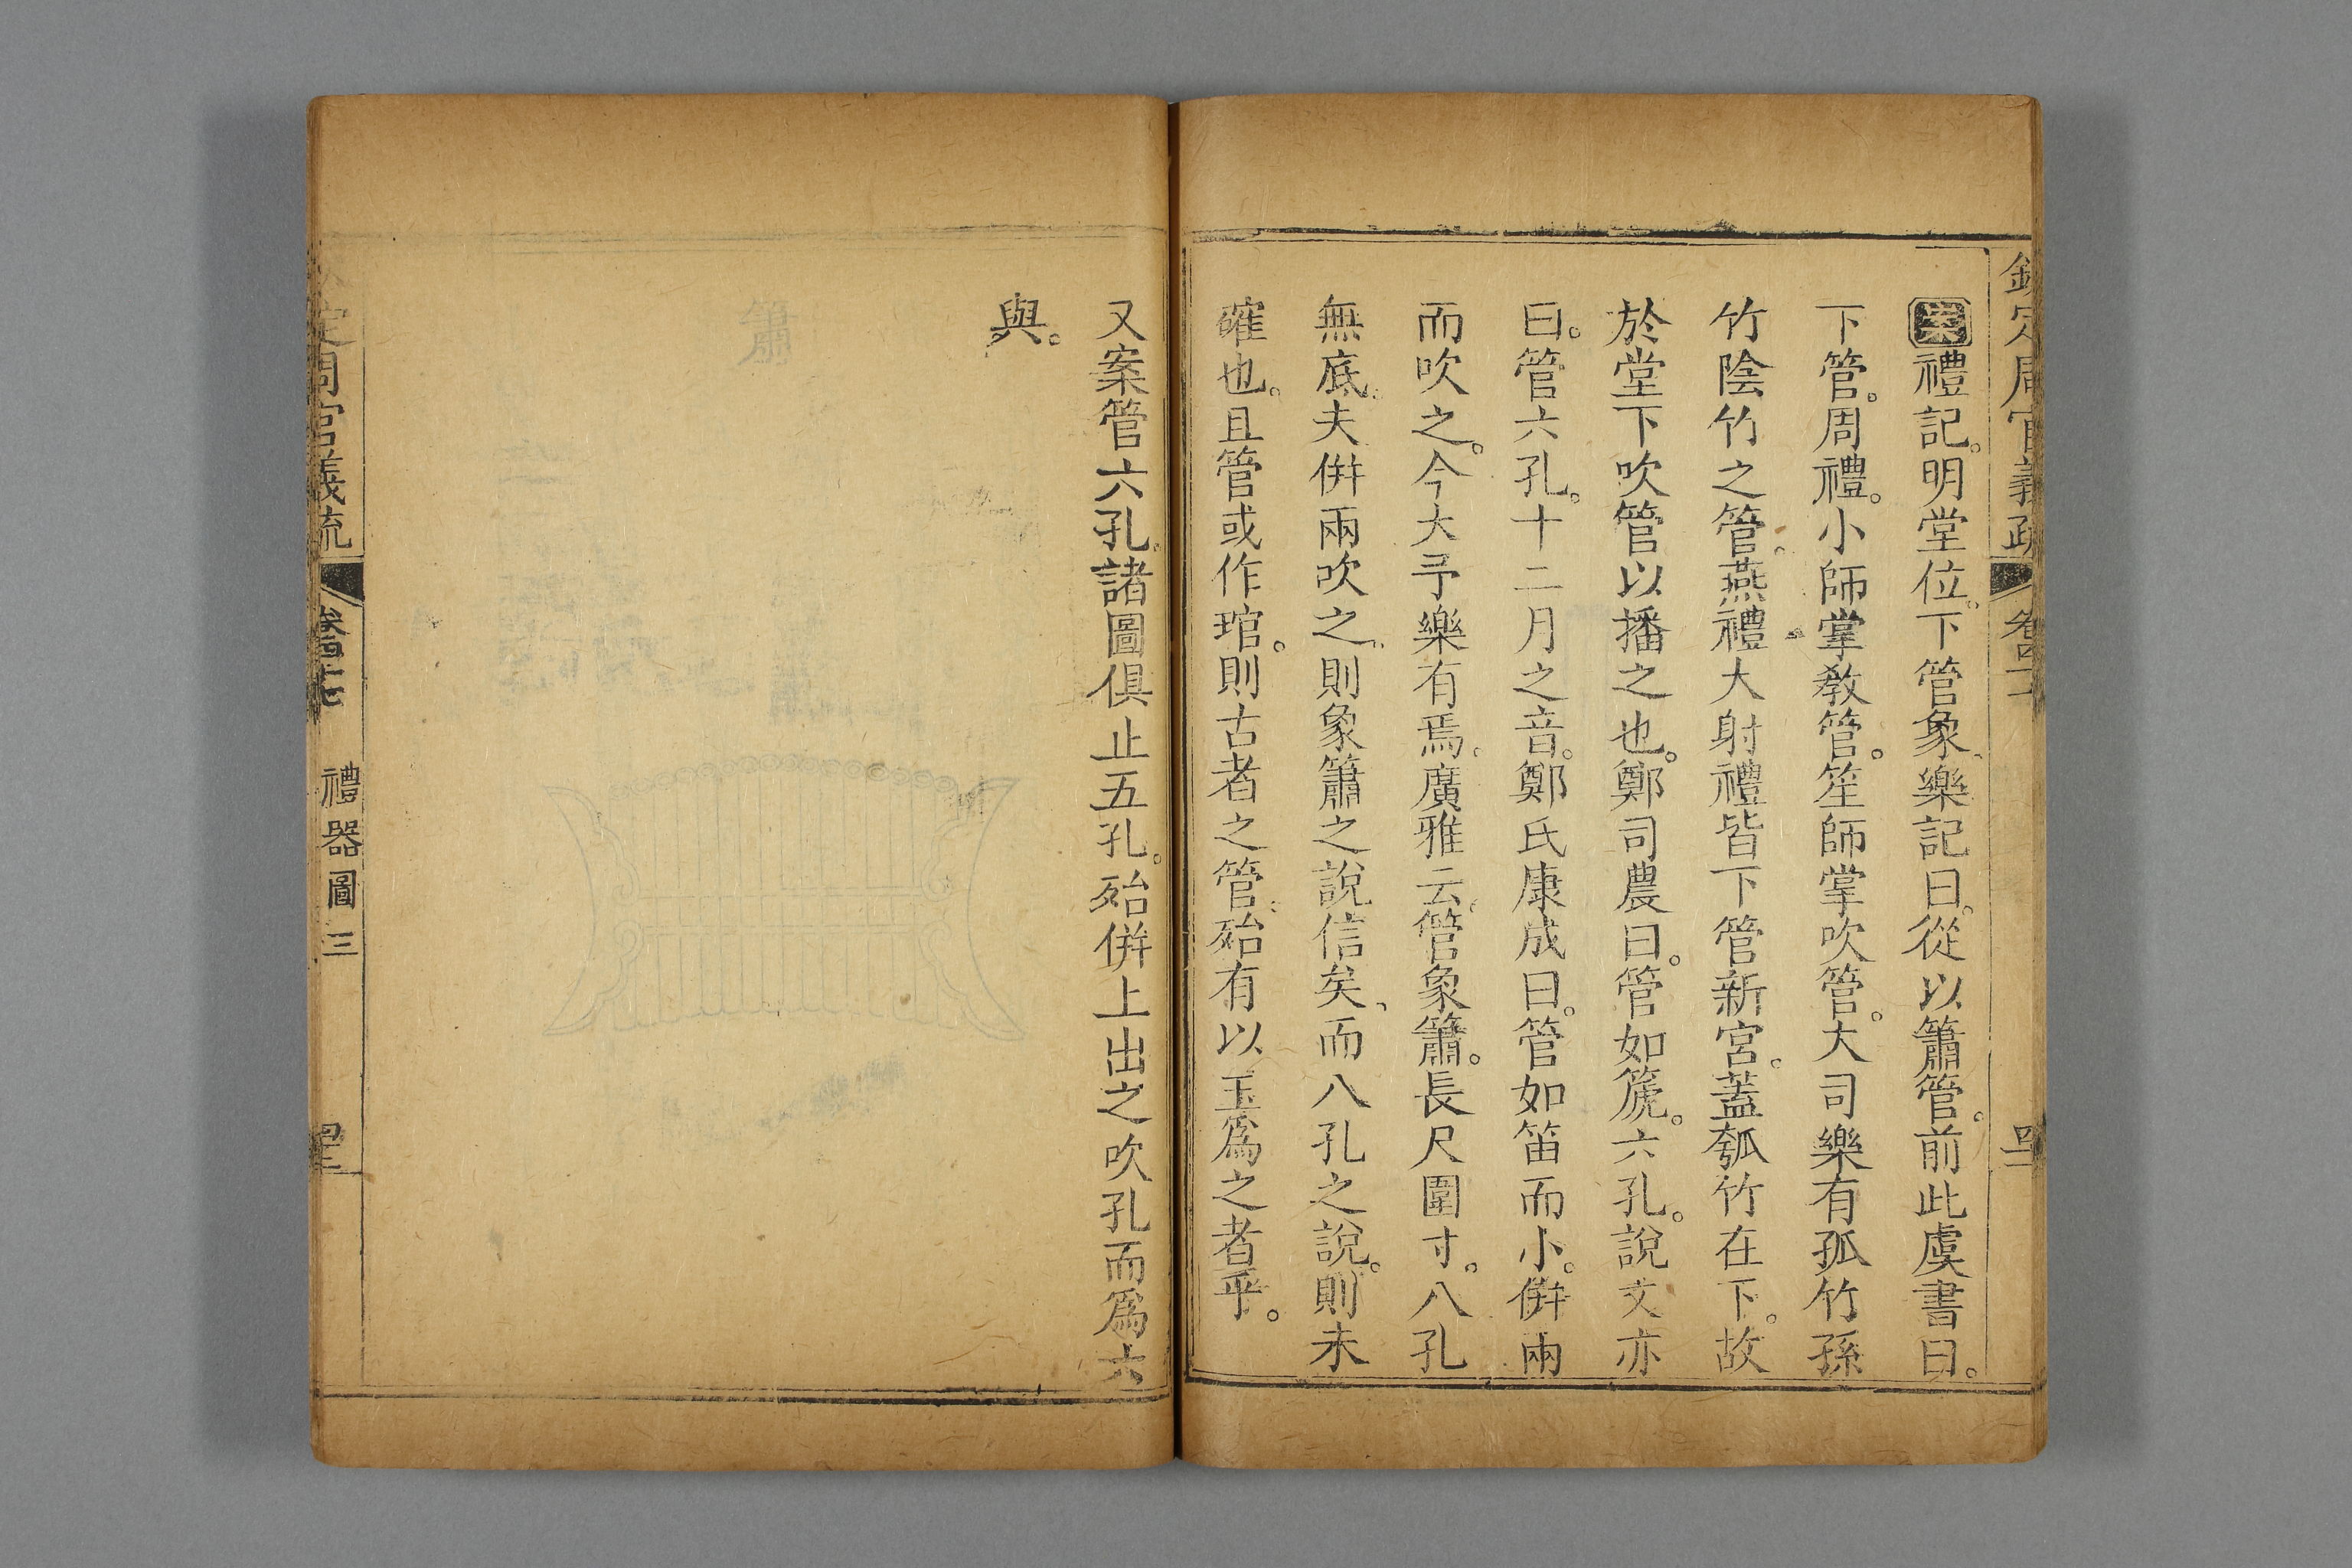 欽定周官義疏 卷四十
案禮記。明堂位。下管象、樂記曰。從以簫管。前此虞書曰。
下管。周禮。小師掌敎管。笙師掌吹管。大司樂有孤竹孫
竹陰竹之管。燕禮大射禮皆下管新宮。蓋匏竹在下。故
於堂下吹管以播之也。鄭司農曰。管如篪。六孔。說文亦
曰。管六孔。十二月之音。鄭氏康成曰。管如笛而小。倂兩
而吹之。今大予樂有焉。廣雅云。管象簫。長尺圍寸。八孔
無底。夫倂兩吹之、則象簫之說信矣、而八孔之說。則未
確也。且管或作琯。則古者之管。殆有以玉爲之者乎。
又案管六孔。諸圖俱止五孔。殆倂上出之吹孔而爲六
與。
簫
定周官義疏 卷四十七 禮器圖三